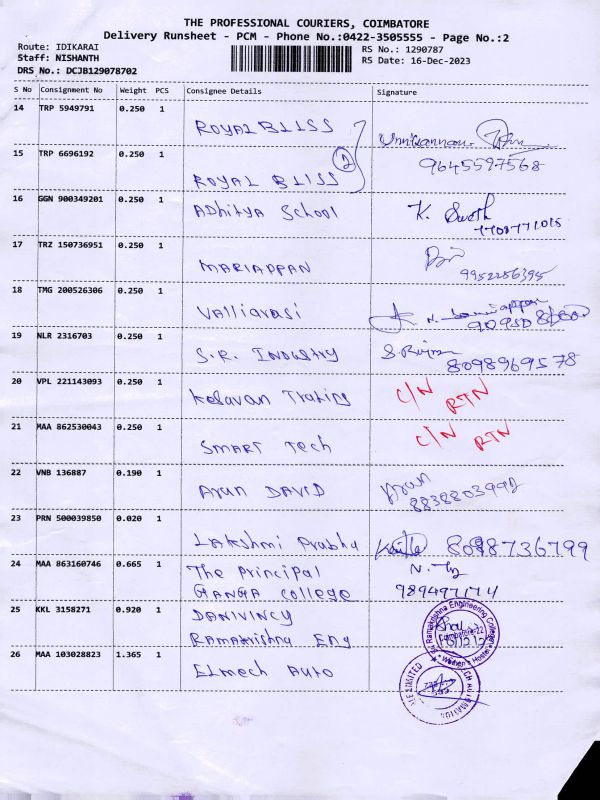 THE PROFESSIONAL COURIERS, COIMBATORE
Delivery Runsheet - PCM - Phone No.:0422-3505555 - Page No.:2
Route: IDIKARAI
RS No.: 1290787
Staff: NISHANTH
RS Date: 16-Dec-2023
DRS No.: DCJB129078702
S No Consignment No Weight PCS Consignee Details Signature
14 TRP 5949791 0.250 1 ROYAL BLISS
15 TRP 6696192 0.250 1 ROYAL BLISS 2 9645597568
16 GGN 900349201 0.250 1 Adhitya School K.
7708771015
17 TRZ 150736951 0.250 1 MARIAPPAN
9952256395
18 TMG 200526306 0.250 1 Valliarasi
19 NLR 2316703 0.250 1 S.R. INDUSTRY
8098969578
20 VPL 221143093 0.250 1 C/N RTN
21 MAA 862530043 0.250 1 SMART Tech C/N RTN
22 VNB 136887 0.190 1 Arun DAVID Arun
8838803992
23 PRN 500039850 0.020 1 Lakshmi Prabha 8098736799
24 MAA 863160746 0.665 1 The Principal
GANGA College 989497174
25 KKL 3158271 0.920 1 DANIVINCY
Ramakrishna Eng
Ramakrishna Engineering College
26 MAA 103028823 1.365 1 Elmech Auto